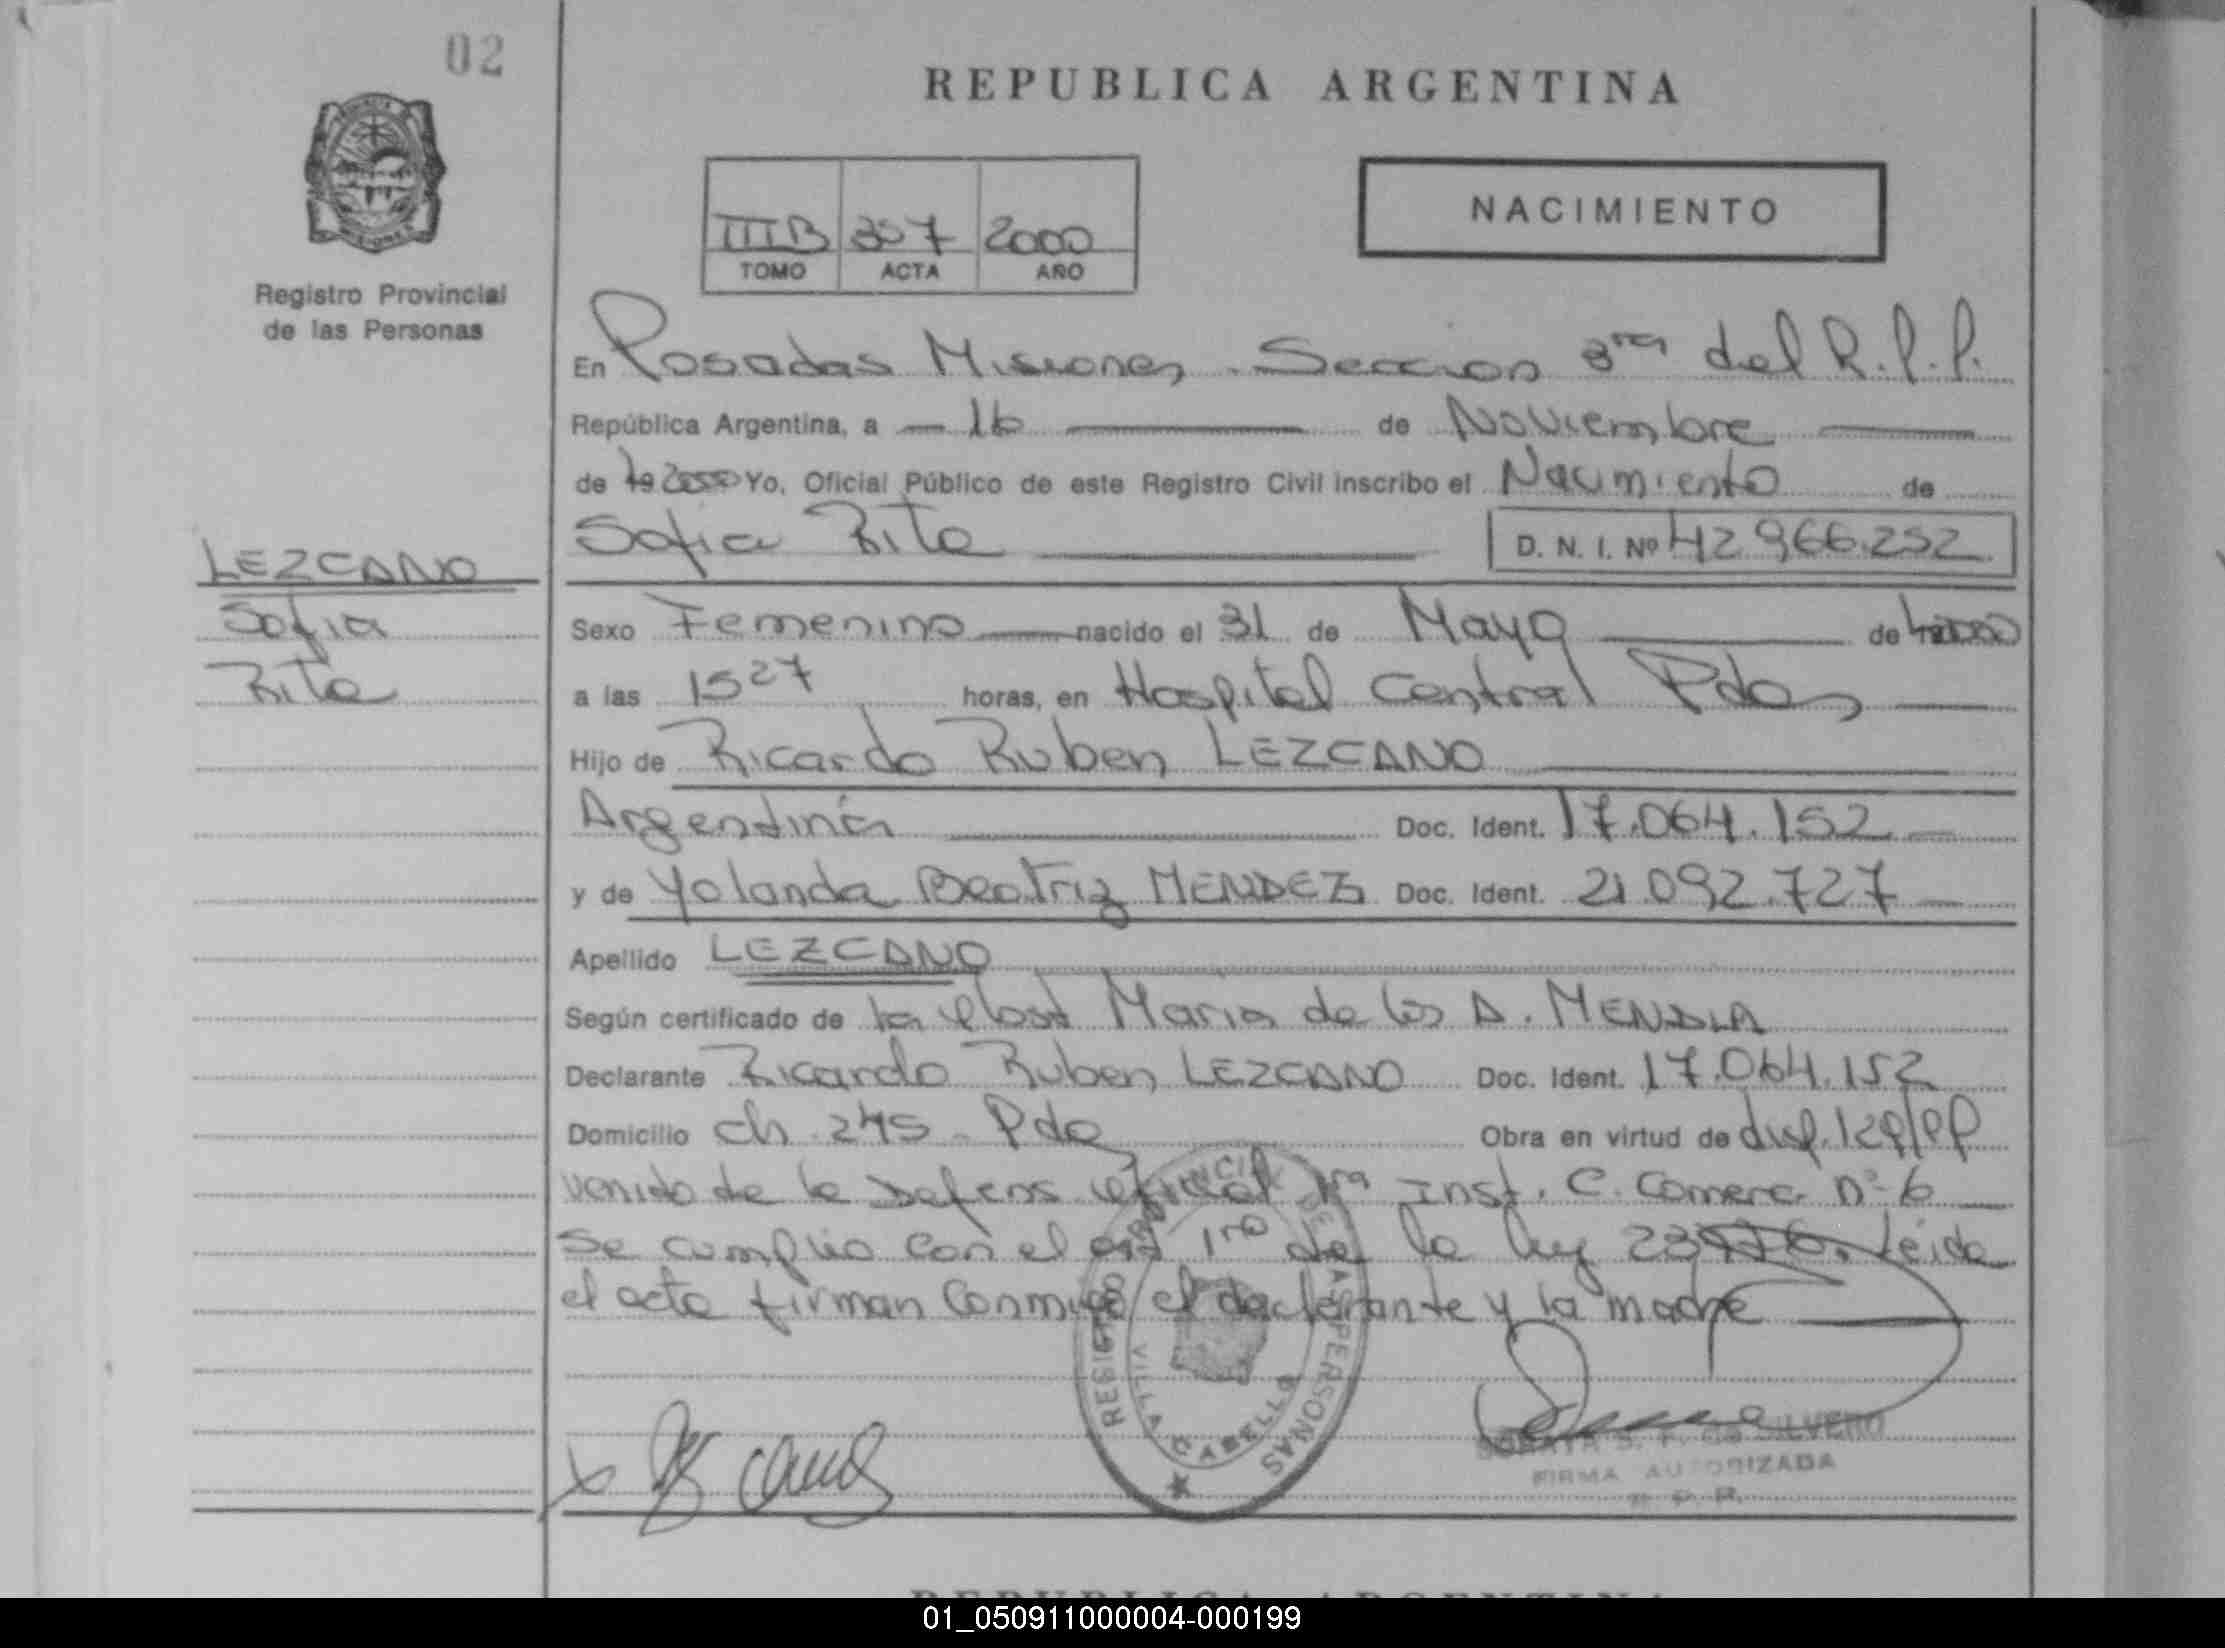 02
REPUBLICA ARGENTINA
NACIMIENTO
IIIB 307 2000
TOMO ACTA AÑO
Registro Provincial
de las Personas
En Posadas Misiones - Seccion 3ra del R.P.P.
República Argentina, a 16 de Noviembre
de 19 2000 Yo, Oficial Público de este Registro Civil inscribo el Nacimiento de
Sofia Rita D. N. I. Nº 42.966.252
LEZCANO
Sofia
Rita
Sexo Femenino nacido el 31 de Mayo de 2000
a las 15 27 horas, en Hospital Central Pdas
Hijo de Ricardo Ruben LEZCANO
Argentina Doc. Ident. 17.064.152
y de Yolanda Beatriz MENDEZ Doc. Ident. 21.092.727
Apellido LEZCANO
Según certificado de la Obst Maria de los A. MENDLA
Declarante Ricardo Ruben LEZCANO Doc. Ident. 17.064.152
Domicilio ch 245 - Pdas Obra en virtud de
venido de la Defens oficial 1ra Inst. C. Comerc. nº 6
se cumplio con el art 1ro de la ley Leida
el acta firman conmigo el declarante y la madre
REGISTRO PROVINCIAL DE LAS PERSONAS
VILLA CABELLO
SILVERO
FIRMA AUTORIZADA
R. P. P.
REPUBLICA ARGENTINA
01_050911000004-000199